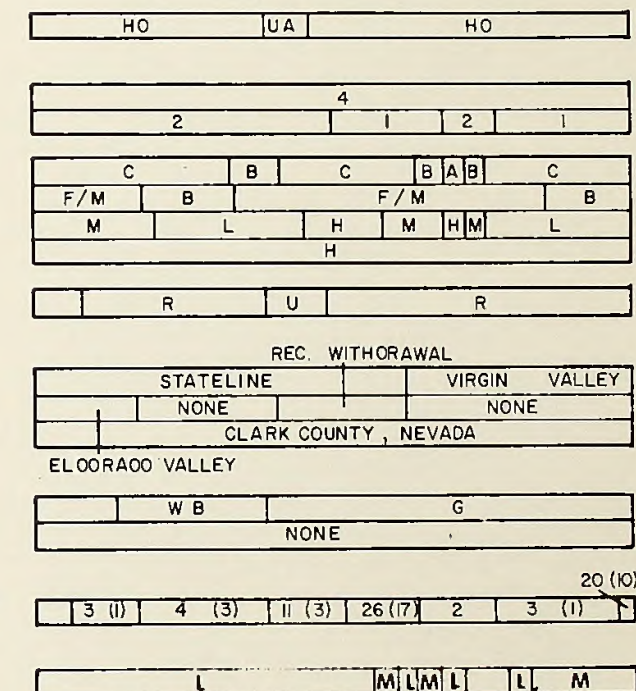 HO UA HO
4
2 1 2 1
C B C B A B C
F/M B F/M B
M L H M H M L
H
R U R
REC. WITHORAWAL
STATELINE VIRGIN VALLEY
NONE NONE
CLARK COUNTY, NEVADA
ELOORAOO VALLEY
W B G
NONE
20 (10)
3 (1) 4 (3) 11 (3) 26 (17) 2 3 (1)
L M L M L L M